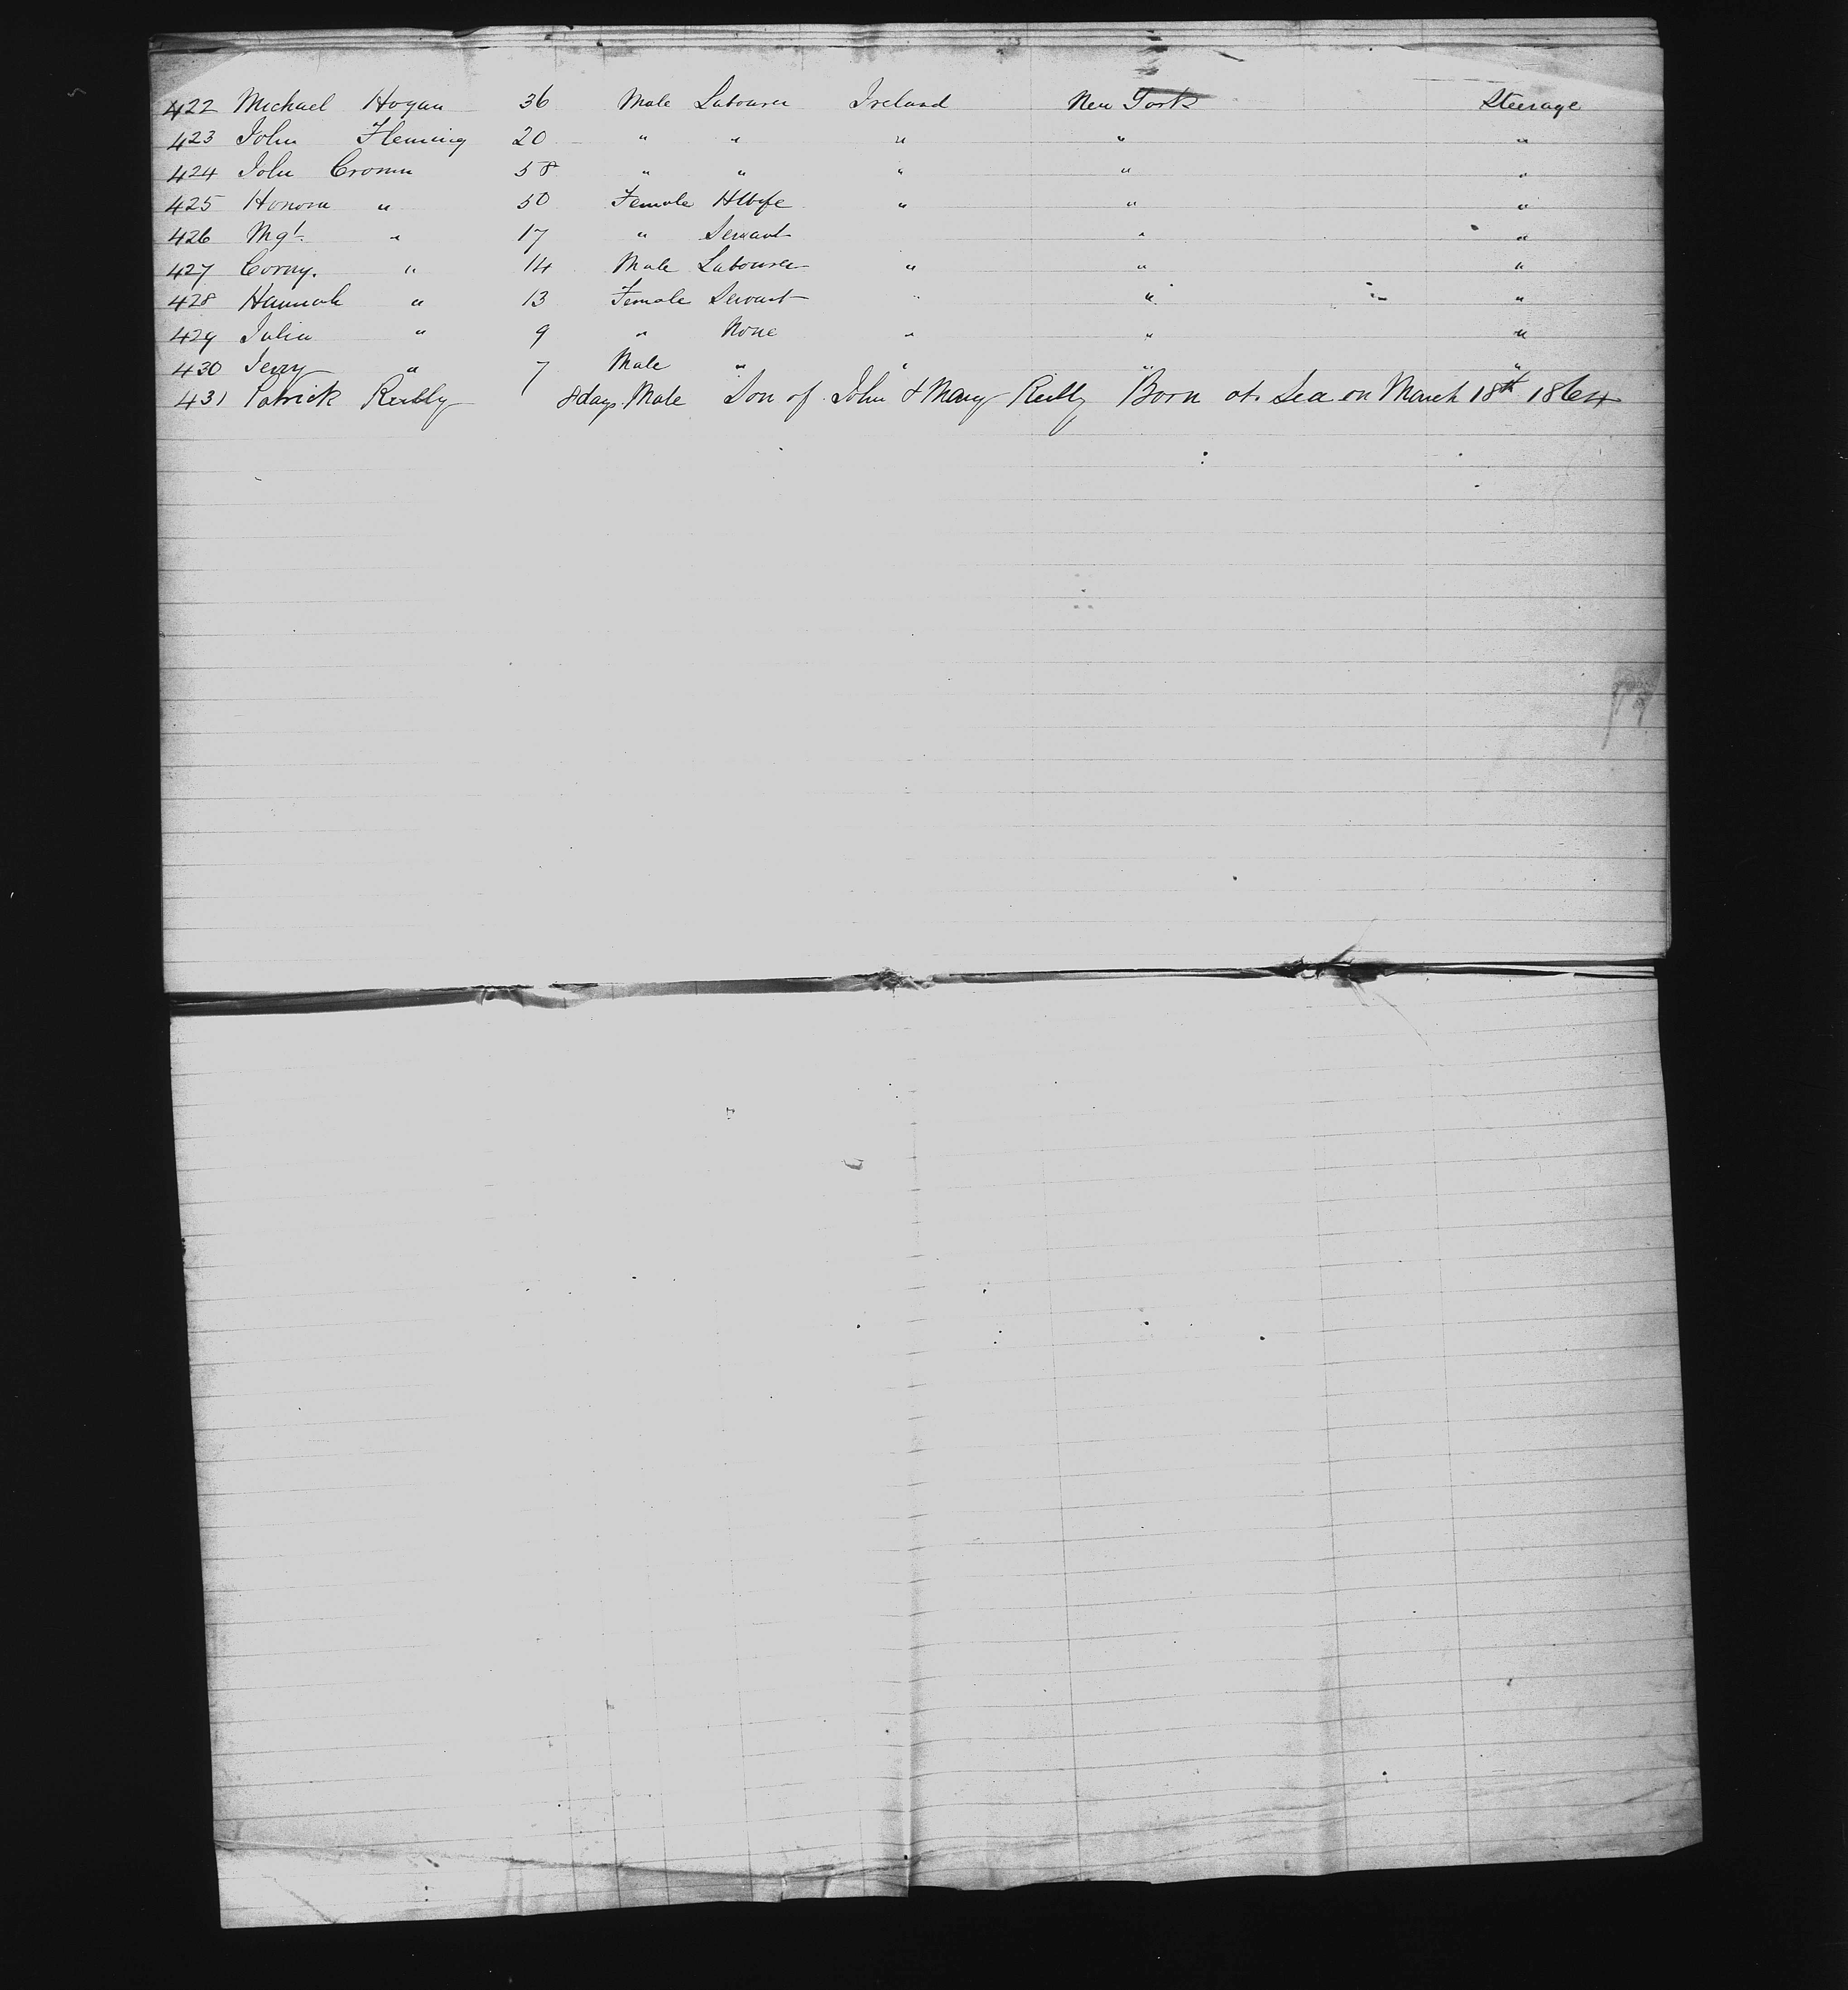 422 Michael Hogan 36 Male Labourer Ireland New York Steerage
423 John Fleming 20 " " " " "
424 John Cronin 58 " " " " "
425 Honora " 50 Female HWife " " "
426 Mgt. " 17 " Servant " "
427 Corny. " 14 Male Labourer " " "
428 Hannah " 13 Female Servant " " "
429 Julia " 9 " None " " "
430 Jerry " 7 Male " " " "
431 Patrick Reilly 8 days Male Son of John & Mary Reilly Born at Sea on March 18th 1864